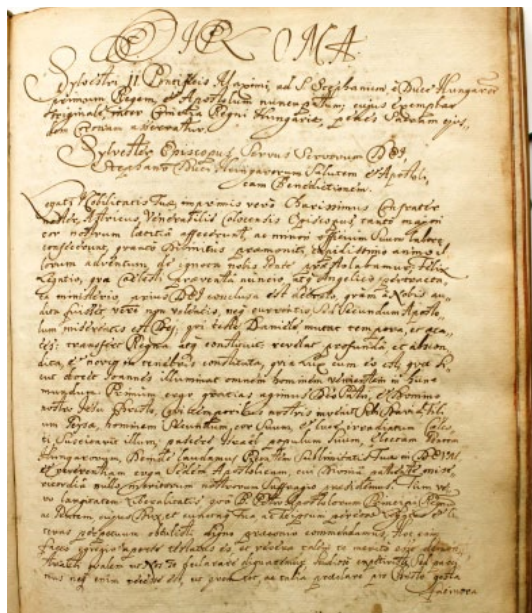 DIPLOMA.
Sylvestri II. Pontificis Maximi, ad S. Stephanum, è Duce Hungaror
primum Regem, et Apostolum nuncupatum; cujus exemplar
originale, inter Regni Hungariæ, penes Sedem ejus,,
dem
Sylvester Episcopus Servus Servorum DEI
Stephano Duci Hungarorum Salutem et Apostoli,,
cam Benedictionem.
Legati Nobilitatis Tuæ, imprimis vero Charissimus Confrater
noster Astricus, Venerabilis Colocensis Episcopus, tanto majori
cor nostrum lætitia affecerunt, ac minori officium suum labore
confecerunt, quanto Divinitus præmoniti, animo il,,
lorum adventum de ignota nobis Gente præstolabamur; felix
Legatio, quæ Cælesti nuncio atq Angelico
ta ministerio, prius DEI conclusa est decreto, quam à Nobis au,,
dita fuisset; vere non volentis, neq currentis, sed secundum Aposto,,
lum miserentis est Dej, qui teste Daniele mutat tempora, et æta,,
tes; transfert Regna, atq constituit; revelat profunda et abscon
dita, et novit in tenebris constituta, quia Lux cum eo est, quæ si,,
cut docet Joannes illuminat omnem hominem venientem in hunc
mundum. Primum ergo gratias agimus Deo Patri, et Domino
nostro Jesu Christo, qui temporibus nostris invenit Sibi David fili,,
um Geysæ, hominem secundum cor Suum, et luce irradiatum Cæles,,
ti suscitavit illum, pascere Israel populum Suum, electam Gentem
Hungarorum. Deinde laudamus Pietatem Sublimitatis Tuæ in DEUM
et reverentiam erga Sedem Apostolicam, cui Divina patiente mise,,
ricordia nullo meritorum nostrorum suffragio præsidemus. Tum ve,,
ro largitatem Liberalitatis qua B. Petro Apostolorum Principi Regnum
ac Gentem, cujus Dux es, cunctaq Tua, ac Te ipsum per eosdem Legatos et li,,
teras perpetuum obtulisti digno præconio commendamus, Hoc enim
facto egregio aperte testatus es, et
talem ut Nos Te declarare
mus neq enim necesse est, ut quem res, ac talia præclare pro Christo gesta